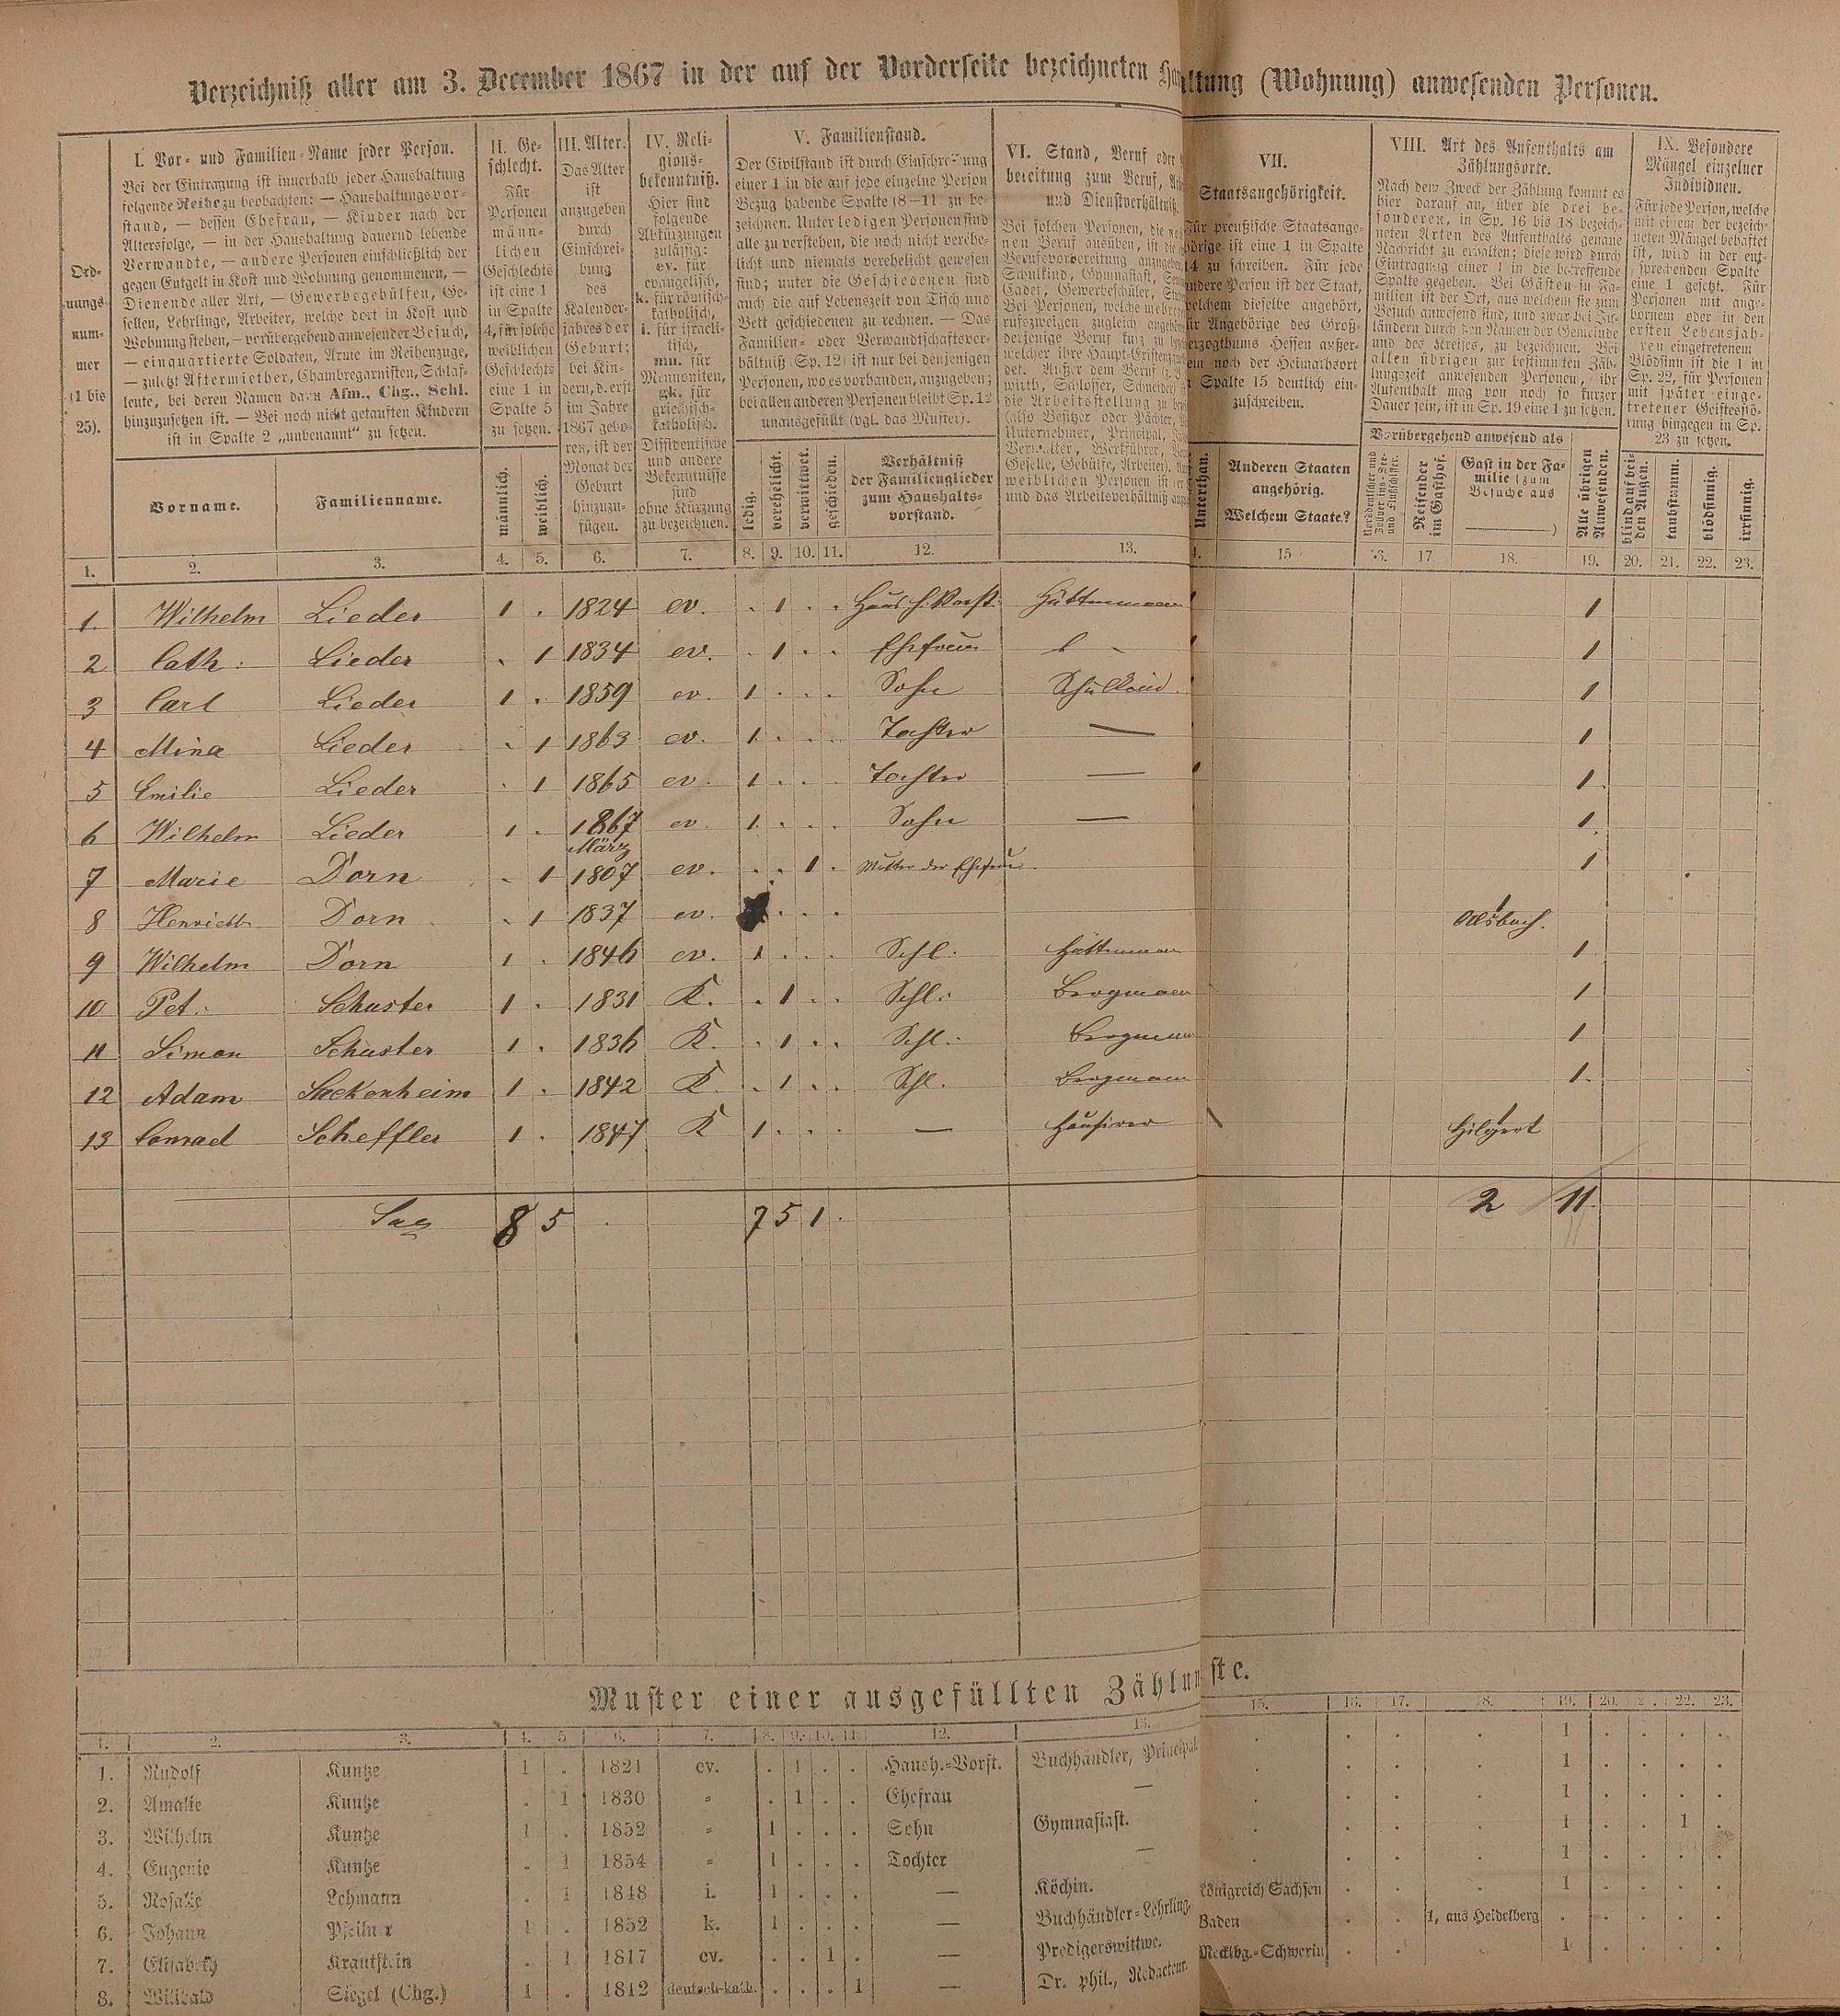 Verzeichniß aller am 3. December 1867 in der auf der Vorderseite bezeichneten Haushaltung (Wohnung) anwesenden Personen.
Ord-
nungs-
num-
mer
(1 bis
25).
I. Vor- und Familien-Name jeder Person.
Bei der Eintragung ist innerhalb jeder Haushaltung
folgende Reihe zu beobachten: — Haushaltungsvor-
stand, — dessen Ehefrau, — Kinder nach der
Altersfolge, — in der Haushaltung dauernd lebende
Verwandte, — andere Personen einschließlich der
gegen Entgelt in Kost und Wohnung genommenen, —
Dienende aller Art, — Gewerbegehülfen, Ge-
sellen, Lehrlinge, Arbeiter, welche dort in Kost und
Wohnung stehen, — vorübergehend anwesender Besuch,
— einquartierte Soldaten, Arme im Reihenzuge,
— zuletzt Aftermiether, Chambregarnisten, Schlaf-
leute, bei deren Namen dann Afm., Chg., Schl.
hinzuzusetzen ist. — Bei noch nicht getauften Kindern
ist in Spalte 2 „unbenannt“ zu setzen.
Vorname.
Familienname.
II. Ge-
schlecht.
Für
Personen
männ-
lichen
Geschlechts
ist eine 1
in Spalte
4, für solche
weiblichen
Geschlechts
eine 1 in
Spalte 5
zu setzen.
männlich.
weiblich.
III. Alter.
Das Alter
ist
anzugeben
durch
Einschrei-
bung
des
Kalender-
jahres der
Geburt;
bei Kin-
dern, d. erst
im Jahre
1867 gebo-
ren, ist der
Monat der
Geburt
hinzuzu-
fügen.
IV. Reli-
gions-
bekenntniß.
Hier sind
folgende
Abkürzungen
zulässig:
ev. für
evangelisch,
k. für römisch-
katholisch,
i. für israeli-
tisch,
mn. für
Mennoniten,
gk. für
griechisch-
katholisch.
Dissidentische
und andere
Bekenntnisse
sind
ohne Kürzung
zu bezeichnen.
V. Familienstand.
Der Civilstand ist durch Einschreibung
einer 1 in die auf jede einzelne Person
Bezug habende Spalte (8—11) zu be-
zeichnen. Unter ledigen Personen sind
alle zu verstehen, die noch nicht verehe-
licht und niemals verehelicht gewesen
sind; unter die Geschiedenen sind
auch die auf Lebenszeit von Tisch und
Bett geschiedenen zu rechnen. — Das
Familien- oder Verwandtschaftsver-
hältniß (Sp. 12) ist nur bei denjenigen
Personen, wo es vorhanden, anzugeben;
bei allen anderen Personen bleibt Sp. 12
unausgefüllt (vgl. das Muster).
ledig.
verehelicht.
verwittwet.
geschieden.
Verhältniß
der Familienglieder
zum Haushalts-
vorstand.
VI. Stand, Beruf oder
bereitung zum Beruf,
und Dienstverhältniß.
Bei solchen Personen, die
nen Beruf ausüben, ist die
Berufsvorbereitung anzugeben
Schulkind, Gymnasiast,
Cadet, Gewerbeschüler,
Bei Personen, welche mehre
rufszweigen zugleich angehören
derjenige Beruf kurz zu
welcher ihre Haupt-Existenz
det. Außer dem Beruf
wirth, Schlosser, Schneider)
die Arbeitsstellung zu
(also Besitzer oder Pächter,
Unternehmer, Principal,
Verwalter, Werkführer,
Geselle, Gehülfe, Arbeiter).
weiblichen Personen ist
und das Arbeitsverhältniß
VII.
Staatsangehörigkeit.
Für preußische Staatsange-
hörige ist eine 1 in Spalte
14 zu schreiben. Für jede
andere Person ist der Staat,
welchem dieselbe angehört,
für Angehörige des Groß-
herzogthums Hessen außer-
dem noch der Heimathsort
in Spalte 15 deutlich ein-
zuschreiben.
Unterthan.
Anderen Staaten
angehörig.
Welchem Staate?
VIII. Art des Aufenthalts am
Zählungsorte.
Nach dem Zweck der Zählung kommt es
hier darauf an, über die drei be-
sonderen, in Sp. 16 bis 18 bezeich-
neten Arten des Aufenthalts genaue
Nachricht zu erhalten; diese wird durch
Eintragung einer 1 in die betreffende
Spalte gegeben. Bei Gästen in Fa-
milien ist der Ort, aus welchem sie zum
Besuch anwesend sind, und zwar bei In-
ländern durch den Namen der Gemeinde
und des Kreises, zu bezeichnen. Bei
allen übrigen zur bestimmten Zäh-
lungszeit anwesenden Personen, ihr
Aufenthalt mag von noch so kurzer
Dauer sein, ist in Sp. 19 eine 1 zu setzen.
Vorübergehend anwesend als
Norddeutscher und
Zollver ins-See-
und Flußschiffer.
Reisender
im Gasthof.
Gast in der Fa-
milie (zum
Besuche aus
)
Alle übrigen
Anwesenden.
IX. Besondere
Mängel einzelner
Individuen.
Für jede Person, welche
mit einem der bezeich-
neten Mängel behaftet
ist, wird in der ent-
sprechenden Spalte
eine 1 gesetzt. Für
Personen mit ange-
bornem oder in den
ersten Lebensjah-
ren eingetretenem
Blödsinn ist die 1 in
Sp. 22, für Personen
mit später einge-
tretener Geistesstö-
rung hingegen in Sp.
23 zu setzen.
blind auf bei-
den Augen.
taubstumm.
blödsinnig.
irrsinnig.
1. 2. 3. 4. 5. 6. 7. 8. 9. 10. 11. 12. 13. 15 16. 17 18. 19. 20. 21. 22. 23.
1. Wilhelm Lieder 1 . 1824 ev. . 1 . . Haush. Vorst. Hüttenmann 1
2 Cath. Lieder . 1 1834 ev. . 1 . . Ehefrau 1
3 Carl Lieder 1 . 1859 ev. 1 . . . Sohn Schulkind 1
4 Mina Lieder . 1 1863 ev. 1 . . . Tochter — 1
5 Emilie Lieder . 1 1865 ev. 1 . . . Tochter — 1
6 Wilhelm Lieder 1 . 1867 ev. 1 . . . Sohn — 1
März
7 Marie Dorn . 1 1807 ev. . . 1 . Mutter der Ehefrau 1
8 Henriette Dorn . 1 1837 ev. . . .
9 Wilhelm Dorn 1 . 1846 ev. 1 . . . Schl. Hüttenmann 1
10 Pet. Schuster 1 . 1831 K. . 1 . . Schl. Bergmann 1
11 Simon Schuster 1 . 1836 K. . 1 . . Schl. Bergmann 1
12 Adam Sackenheim 1 . 1842 K . 1 . . Schl. Bergmann 1
13 Conrad Scheffler 1 . 1847 K 1 . . . — Hausirer Hilgert
8 5 7 5 1 2 11
Muster einer ausgefüllten Zählungsliste.
1. 2. 3. 4. 5 6. 7. 8. 9. 10. 11. 12. 13. 15. 16. 17. 18. 19. 20. 2. 22. 23.
1. Rudolf Kuntze 1 . 1821 ev. . 1 . . Haush.-Vorst. Buchhändler, Principal. 1
2. Amalie Kuntze . 1 1830 „ . 1 . . Ehefrau — 1
3. Wilhelm Kuntze 1 . 1852 „ 1 . . . Sohn Gymnasiast. 1 1
4. Eugenie Kuntze . 1 1854 „ 1 . . . Tochter — 1
5. Rosalie Lehmann . 1 1848 i. 1 . . . — Köchin. Königreich Sachsen 1
6. Johann Pfeilner 1 . 1852 k. 1 . . . — Buchhändler-Lehrling. Baden 1, aus Heidelberg
7. Elisabeth Krautstein . 1 1817 ev. . . 1 . — Predigerswittwe. Mecklbg.-Schwerin 1
8. Willibald Siegel (Chg.) 1 . 1812 deutsch-kath. . . . 1 — Dr. phil., Redacteur.